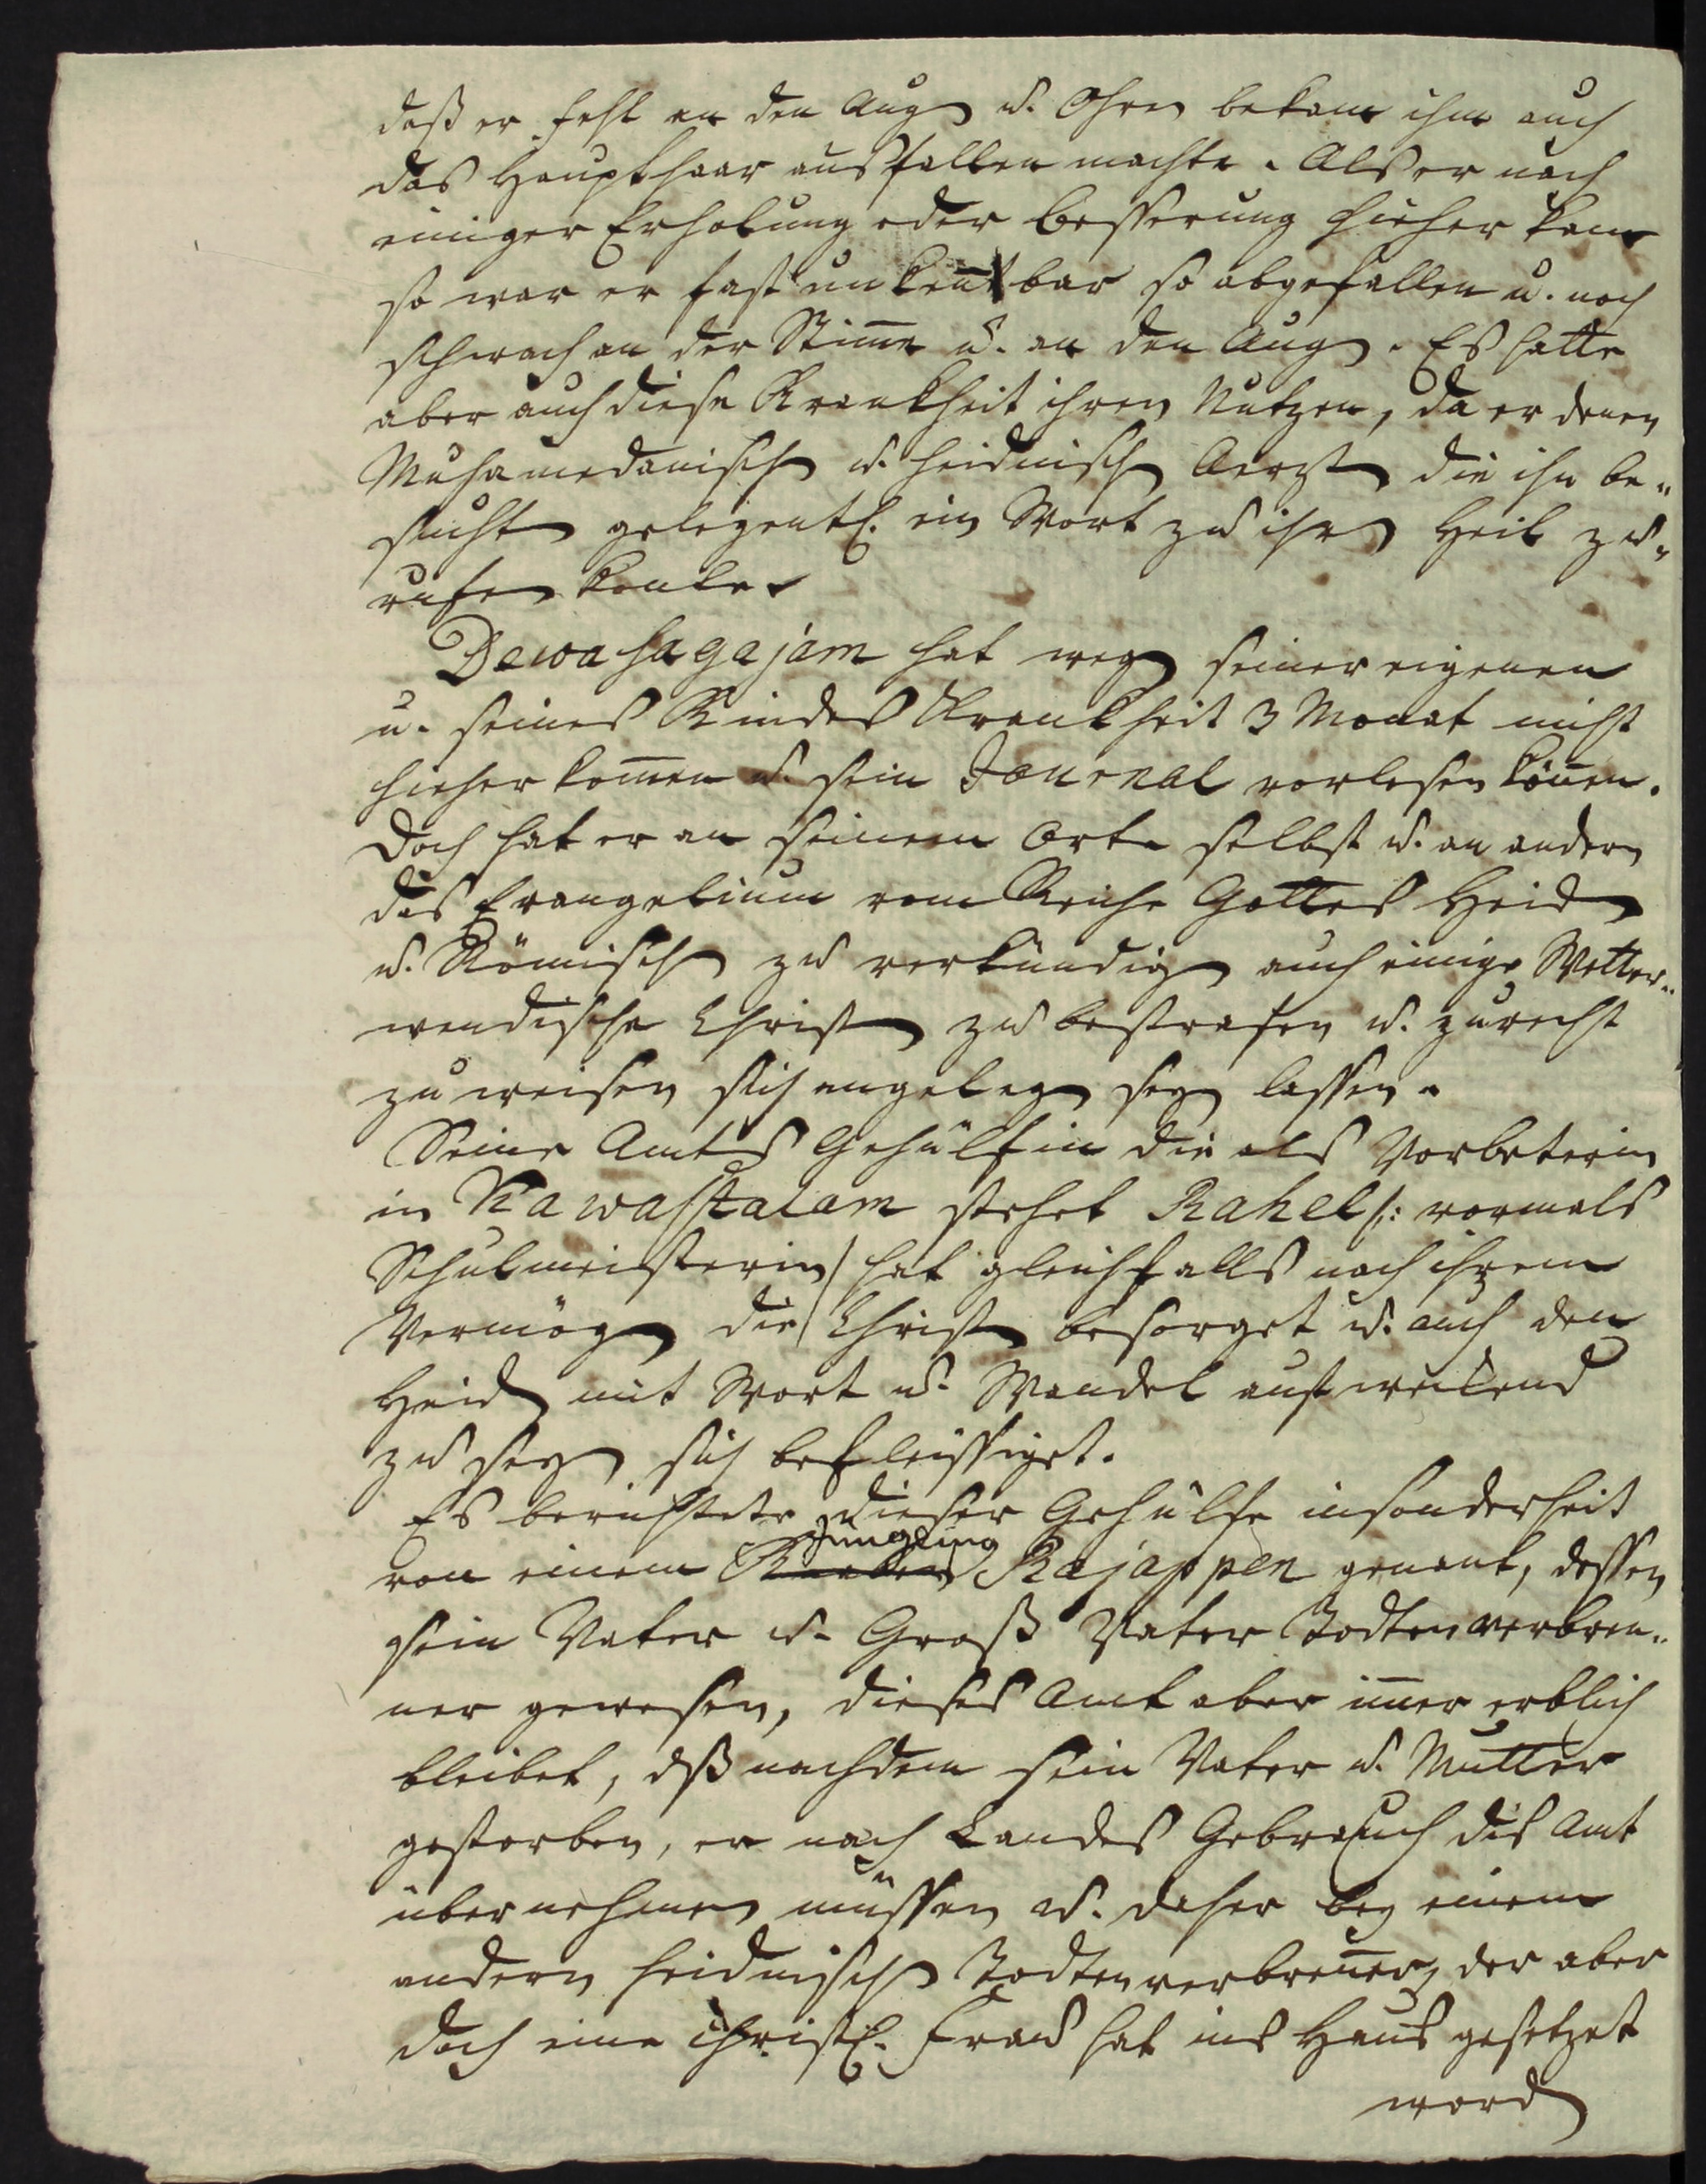 daß er Fehl an den Augen u. Ohren bekam ihm auch
das Haupthaar ausfallen machte. Als er nach
einiger Erholung oder Besserung hieher kam
so war er fast unkentbar so abgefallen u. noch
schwach an der Stim̅e u. an den Augen. Es hatte
aber auch diese Krankheit ihren Nutzen, da er denen
Muhamedanischen u. heidnischen Aerzten die ihn be„
suchten gelegentl. ein Wort zu ihrem Heil zu„
rufen konte.
Dewasagajam hat wegen seiner eigenen
u. seines Kindes Krankheit 3 Monat nicht
hieher kom̅en u. sein Journal vorlesen kön̅en.
Doch hat er an seinem Orte selbst u. an andern
das Evangelium vom Reiche Gottes Heiden
u. Römischen zu verkündigen auch einige Wetter„
wendische Christen zu bestrafen u. zurecht
zu weisen sich angelegen seyn lassen.
Seine Amts Gehülfin die als Vorbeterin
in Kawastalam stehet Rahel /: vormals
Schulmeisterin / hat gleichfalls nach ihrem
Vermögen die Christen besorget u. auch den
Heiden mit Wort u. Wandel aufweckend
zu seyn sich befleissiget.
Es berichtete dieser Gehülfe insonderheit
von einem Knaben Jüngling Rajappen genant, dessen
sein Vater u. Groß Vater Todtenverbren„
ner gewesen, dieses Amt aber im̅er erblich
bleibet, dß nachdem sein Vater u. Mutter
gestorben, er nach Landes Gebrauch das Amt
übernehmen müssen u. daher bey einem
andern heidnischen Todtenverbren̅er, der aber
doch eine christl. Frau hat ins Haus gesetzet
worden